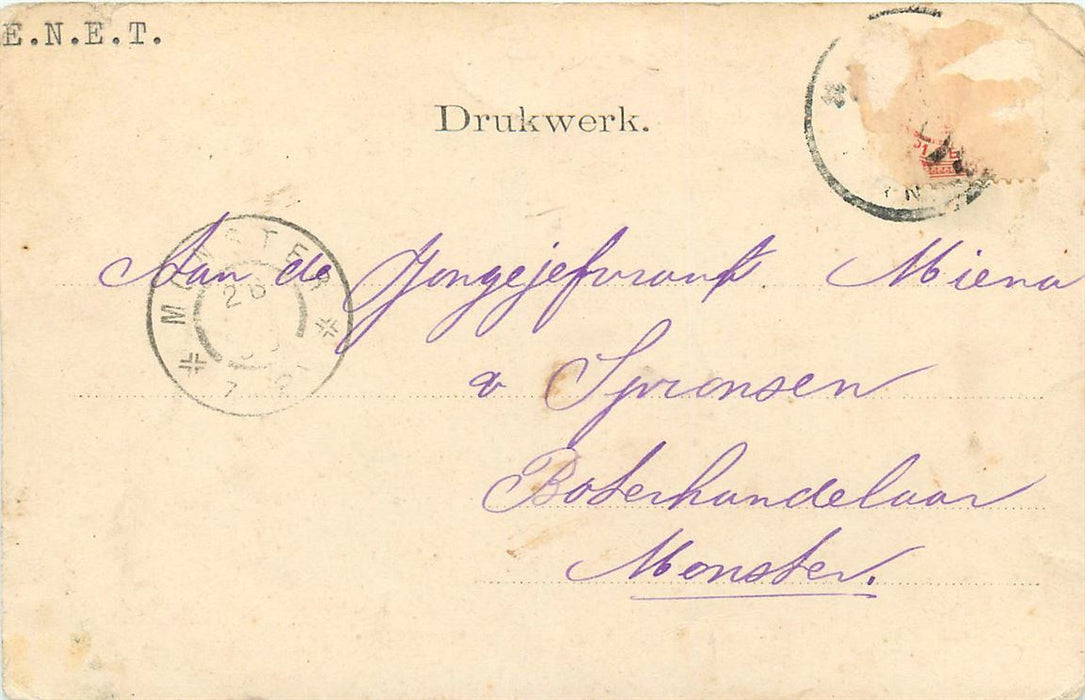 E.N.E.T.
Drukwerk.
MONSTER
28
7
Aan de Jongejefvrouw Miena
v Spronsen
Boterhandelaar
Monster.